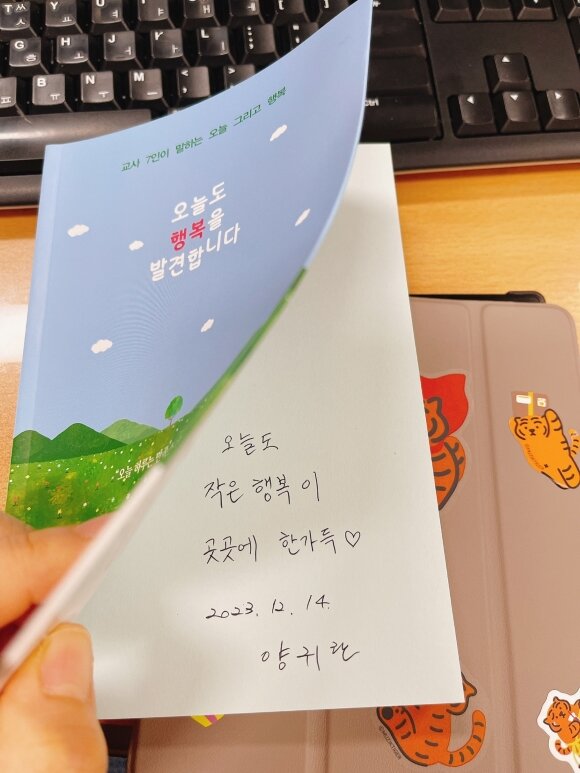 교사 7인이 말하는 오늘 그리고 행복
오늘도
행복을
발견합니다
"오늘 하루는
오늘도
작은 행복이
곳곳에 한가득♡
2023. 12. 14.
양귀란